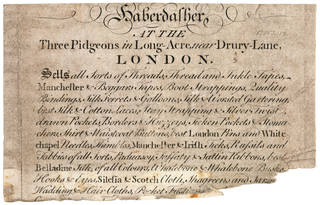 Haberdasher,
AT THE
Three Pidgeons in Long-Acre, near Drury-Lane,
LONDON.
Sells all Sorts of Threads, Thread and Inkle Tapes,
Manchester & Beggars Tapes, Boot Strappings, Quality
Bindings, Silk Ferrets & Galloons, Silk & Worsted Gartering,
Silk & Cotton Laces, Stay Strappings & Silver Twist
Drawn Pockets, Borders &
Shirt & Waistcoat Buttons, best London Pins and White
chapel Needles, Thimbles, Manchester & Irish
all Sorts, Paduasoy, Taffaty & Sattin Ribbons, best
Belladine Silk, of all Colours, Whalebone & Whalebone Busks,
Hooks & Eyes, Silesia & Scotch Cloth,
Wadding & Hair Cloths, Pocket